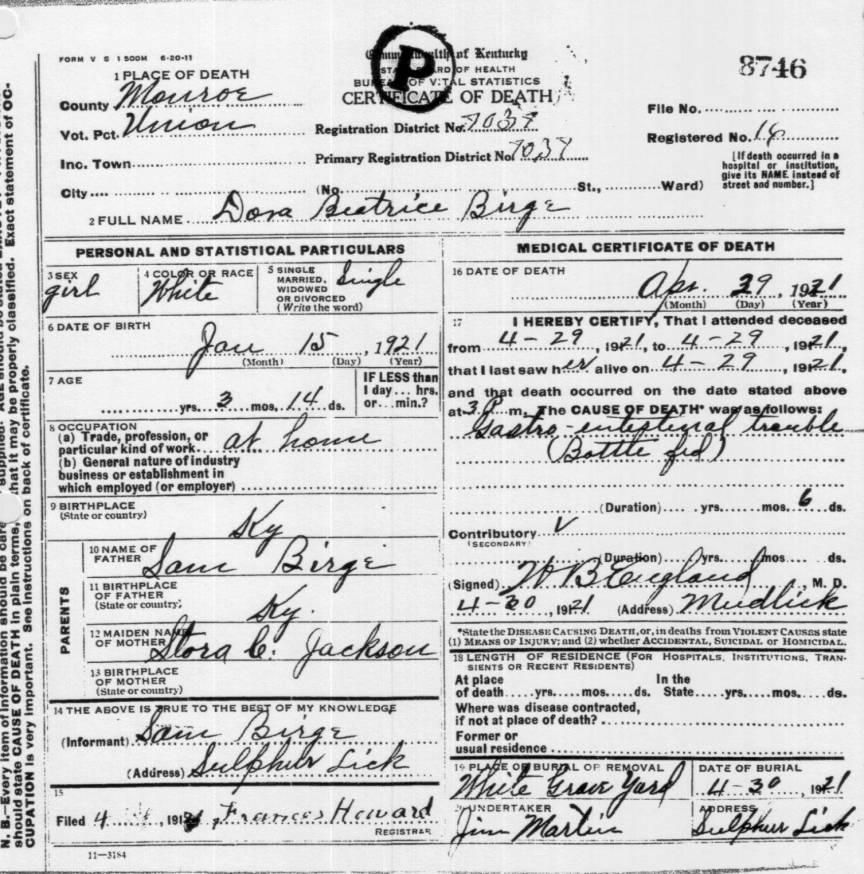 FORM V S 1 500M 6-20-11
Commonwealth of Kentucky
STATE BOARD OF HEALTH
BUREAU OF VITAL STATISTICS
CERTIFICATE OF DEATH
P
8746
1 PLACE OF DEATH
County Monroe
Vot. Pct. Union
Inc. Town
City (No. St., Ward)
Registration District No. 1039
Primary Registration District No.
File No.
Registered No.
[If death occurred in a hospital or institution, give its NAME instead of street and number.]
2 FULL NAME Dora Beatrice Birge
PERSONAL AND STATISTICAL PARTICULARS
3 SEX girl
4 COLOR OR RACE White
5 SINGLE MARRIED, WIDOWED OR DIVORCED (Write the word) Single
6 DATE OF BIRTH
Jan 15, 1921
(Month) (Day) (Year)
7 AGE
yrs. 3 mos. 14 ds.
IF LESS than 1 day... hrs. or... min.?
8 OCCUPATION
(a) Trade, profession, or particular kind of work at home
(b) General nature of industry business or establishment in which employed (or employer)
9 BIRTHPLACE
(State or country) Ky
PARENTS
10 NAME OF FATHER Sam Birge
11 BIRTHPLACE OF FATHER (State or country) Ky.
12 MAIDEN NAME OF MOTHER Stora C. Jackson
13 BIRTHPLACE OF MOTHER (State or country)
14 THE ABOVE IS TRUE TO THE BEST OF MY KNOWLEDGE
(Informant) Sam Birge
(Address) Sulphur Lick
15
Filed 4 191 Frances Howard
REGISTRAR
11—3184
MEDICAL CERTIFICATE OF DEATH
16 DATE OF DEATH
Apr. 29, 1921
(Month) (Day) (Year)
17 I HEREBY CERTIFY, That I attended deceased
from 4-29, 1921, to 4-29, 1921,
that I last saw her alive on 4-29, 1921,
and that death occurred on the date stated above
at 3 P m. The CAUSE OF DEATH* was as follows:
Gastro-intestinal trouble
(Bottle fed)
(Duration) yrs. mos. 6 ds.
Contributory
(SECONDARY)
(Duration) yrs. mos. ds.
(Signed) W B England, M. D.
4-30, 1921 (Address) Mudlick
*State the DISEASE CAUSING DEATH, or, in deaths from VIOLENT CAUSES state
(1) MEANS OF INJURY; and (2) whether ACCIDENTAL, SUICIDAL or HOMICIDAL.
18 LENGTH OF RESIDENCE (FOR HOSPITALS, INSTITUTIONS, TRANSIENTS OR RECENT RESIDENTS)
At place of death yrs. mos. ds. In the State yrs. mos. ds.
Where was disease contracted, if not at place of death?
Former or usual residence
19 PLACE OF BURIAL OR REMOVAL White Grave Yard
DATE OF BURIAL 4-30, 1921
20 UNDERTAKER Jim Martin
ADDRESS Sulphur Lick
N. B.—Every item of information should be
should state CAUSE OF DEATH in plain terms, that it may be properly classified. Exact statement of OC-
CUPATION is very important. See instructions on back of certificate.